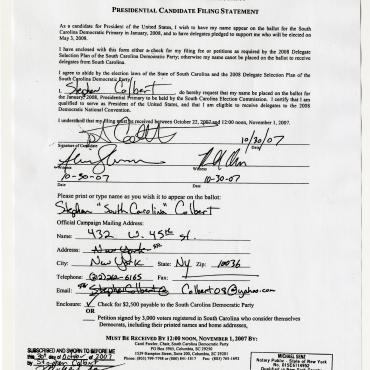 PRESIDENTIAL CANDIDATE FILING STATEMENT
As a candidate for President of the United States, I wish to have my name appear on the ballot for the South
Carolina Democratic Primary in January, 2008, and to have delegates pledged to support me who will be elected on
May 3, 2008.
I have enclosed with this form either a check for my filing fee or petitions as required by the 2008 Delegate
Selection Plan of the South Carolina Democratic Party; otherwise my name cannot be placed on the ballot to receive
delegates from South Carolina.
I agree to abide by the election laws of the State of South Carolina and the 2008 Delegate Selection Plan of the
South Carolina Democratic Party.
I, Stephen Colbert do hereby request that my name be placed on the ballot for
the January, 2008, Presidential Primary to be held by the South Carolina Election Commission. I certify that I am
qualified to serve as President of the United States, and that I am eligible to receive delegates to the 2008
Democratic National Convention.
I understand that my filing must be received between October 22, 2007 and 12:00 noon, November 1, 2007.
10/30/07
Signature of Candidate Date
Witness
10-30-07 10-30-07
Date Date
Please print or type name as you wish it to appear on the ballot:
Stephen "South Carolina" Colbert
Official Campaign Mailing Address:
Name: 432 W. 45th St.
Address: New York
City: New York State: NY Zip: 10036
Telephone: Fax:
Email: Stephen Colbert @ Colbert08@yahoo.com
Enclosure: ✓ Check for $2,500 payable to the South Carolina Democratic Party
OR
Petition signed by 3,000 voters registered in South Carolina who consider themselves
Democrats, including their printed names and home addresses,
MUST BE RECEIVED BY 12:00 NOON, NOVEMBER 1, 2007 BY:
Carol Fowler, Chair, South Carolina Democratic Party
PO Box 5965, Columbia, SC 29250
1529 Hampton Street, Suite 200, Columbia, SC 29201
SUBSCRIBED AND SWORN TO BEFORE ME
the 30th day of October of 2007
by Stephen Colbert
MICHAEL SENZ
Notary Public - State of New York